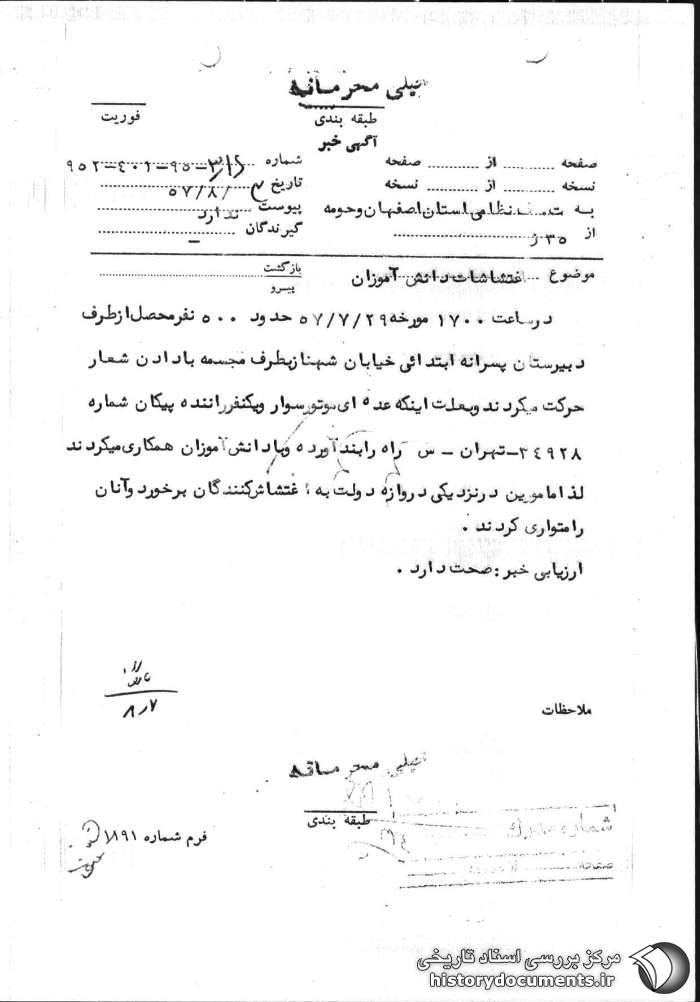 خیلی محرمانه
طبقه بندی
فوریت
آگهی خبر
صفحه از صفحه
شماره
نسخه از نسخه
تاریخ /۵۷/۸
به نظامی استان اصفهان وحومه
پیوست ندارد
از ۳۵ ر
گیرندگان —
موضوع اغتشاشات دانش آموزان
بازگشت
پیرو
درساعت ۱۷۰۰ مورخه ۵۷/۷/۲۹ حدود ۵۰۰ نفرمحصل ازطرف
دبیرستان پسرانه ابتدائی خیابان شهنازبطرف مجسمه بادادن شعار
حرکت میکردند وبعلت اینکه عده ای موتورسوار ویکنفرراننده پیکان شماره
۳۴۹۲۸-تهران - س راه رابندآورده وبادانش آموزان همکاری میکردند
لذا مامورین درنزدیکی دروازه دولت به اغتشاش کنندگان برخورد وآنان
رامتواری کردند .
ارزیابی خبر : صحت دارد .
۸/۷
ملاحظات
خیلی محرمانه
طبقه بندی
شماره مدرک
صفحه
فرم شماره ۱۸۹۱
مرکز بررسی اسناد تاریخی
historydocuments.ir